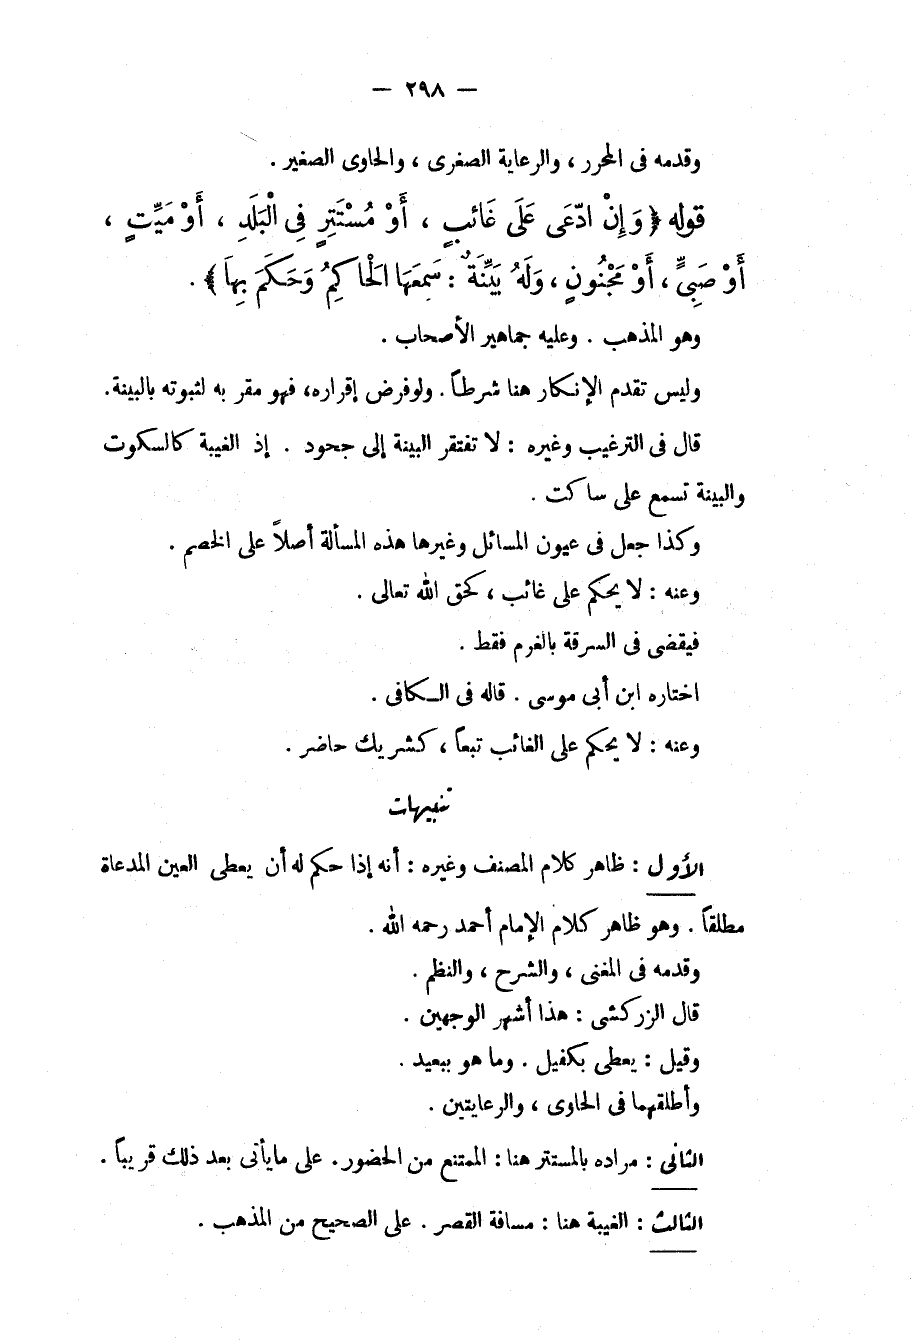 — ٢٩٨ —
وقدمه فى المحرر ، والرعاية الصغرى ، والحاوى الصغير .
قوله ﴿ وَإِنْ ادَّعَى عَلَى غَائِبٍ ، أَوْ مُسْتَتِرٍ فِى الْبَلَدِ ، أَوْ مَيِّتٍ ،
أَوْ صَبِىٍّ ، أَوْ مَجْنُونٍ ، وَلَهُ بَيِّنَةٌ : سَمِعَهَا الْحَاكِمُ وَحَكَمَ بِهاَ ﴾ .
وهو المذهب . وعليه جماهير الأصحاب .
وليس تقدم الإنكار هنا شرطاً . ولوفرض إقراره، فهو مقر به لثبوته بالبينة.
قال فى الترغيب وغيره : لا تفتقر البينة إلى جحود . إذ الغيبة كالسكوت
والبينة تسمع على ساكت .
وكذا جعل فى عيون المسائل وغيرها هذه المسألة أصلاً على الخصم .
وعنه : لا يحكم على غائب ، كحق الله تعالى .
فيقضى فى السرقة بالغرم فقط .
اختاره ابن أبى موسى . قاله فى الـكافى .
وعنه : لا يحكم على الغائب تبعاً ، كشريك حاضر .
تنبيهات
الأول : ظاهر كلام المصنف وغيره : أنه إذا حكم له أن يعطى العين المدعاة
مطلقاً . وهو ظاهر كلام الإمام أحمد رحمه الله .
وقدمه فى المغنى ، والشرح ، والنظم .
قال الزركشى : هذا أشهر الوجهين .
وقيل : يعطى بكفيل . وما هو ببعيد .
وأطلقهما فى الحاوى ، والرعايتين .
الثانى : مراده بالمستتر هنا : الممتنع من الحضور . على مايأتى بعد ذلك قريباً .
الثالث : الغيبة هنا : مسافة القصر . على الصحيح من المذهب .